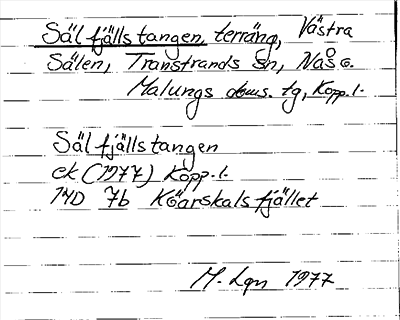 Sälfjällstangen, terräng, Västra
Sälen, Transtrands sn, Nås o.
Malungs doms. tg, Kopp. l.
Sälfjällstangen
ek (1977) Kopp. l.
14D 7b Köarskalsfjället
M. Lgn 1977